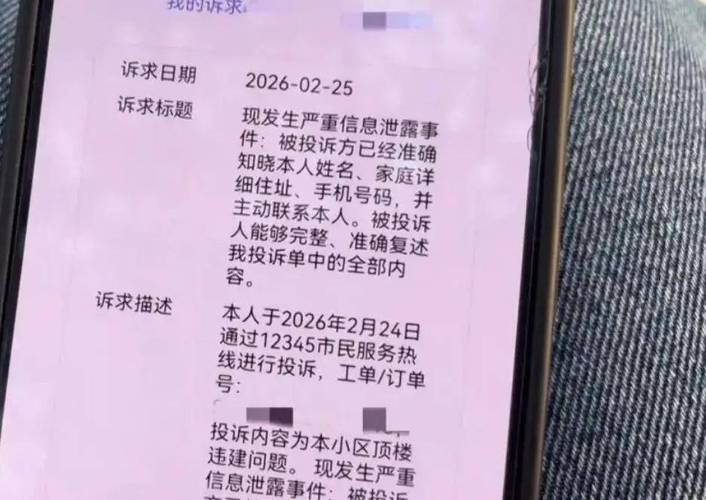 我的诉求
诉求日期 2026-02-25
诉求标题 现发生严重信息泄露事
件：被投诉方已经准确
知晓本人姓名、家庭详
细住址、手机号码，并
主动联系本人。被投诉
人能够完整、准确复述
我投诉单中的全部内
容。
诉求描述 本人于2026年2月24日
通过12345市民服务热
线进行投诉，工单/订单
号：
投诉内容为本小区顶楼
违建问题。现发生严重
信息泄露事件：被投诉